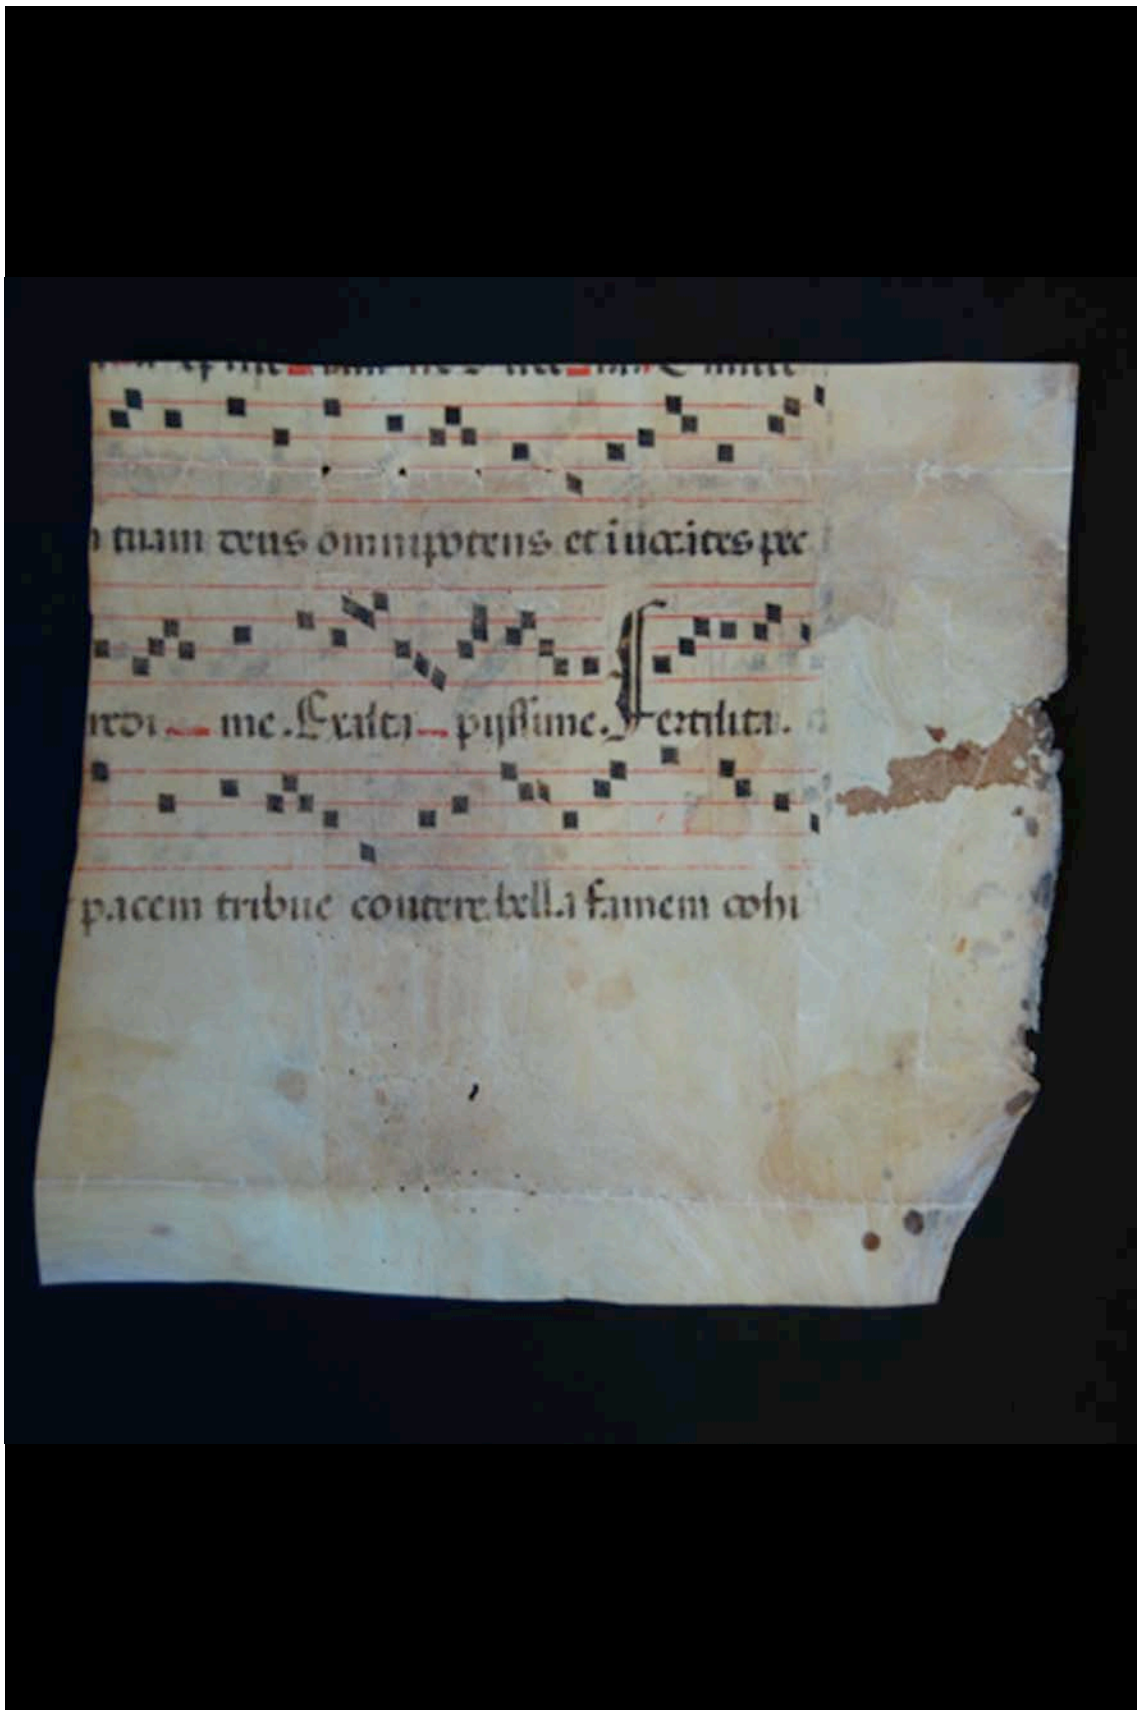 tuam deus omnipotens et iuxites pec
me. Exalta piissime. Fertilita.
pacem tribue contere bella famem cohi